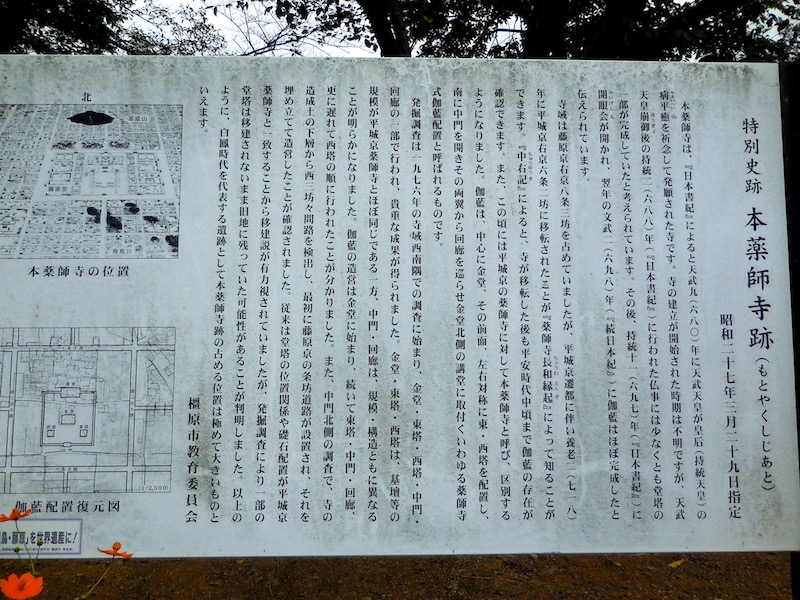 特別史跡 本薬師寺跡（もとやくしじあと）
昭和二十七年三月二十九日指定
本薬師寺は、『日本書紀』によると天武九（六八〇）年に天武天皇が皇后（持統天皇）の
病平癒を祈念して発願された寺です。寺の建立が開始された時期は不明ですが、天武
天皇崩御後の持統二（六八八）年（『日本書紀』）に行われた仏事には少なくとも堂塔の
一部が完成していたと考えられています。その後、持統十一（六九七）年（『日本書紀』）に
開眼会が開かれ、翌年の文武二（六九八）年（『続日本紀』）に伽藍はほぼ完成したと
伝えられています。
寺域は藤原京右京八条三坊を占めていましたが、平城京遷都に伴い養老二（七一八）
年に平城京右京六条二坊に移転されたことが『薬師寺長和縁起』によって知ることが
できます。『中右記』によると、寺が移転した後も平安時代中頃まで伽藍の存在が
確認できます。また、この頃には平城京の薬師寺に対して本薬師寺と呼び、区別する
ようになりました。伽藍は、中心に金堂、その前面、左右対称に東・西塔を配置し、
南に中門を開きその両翼から回廊を巡らせ金堂北側の講堂に取付くいわゆる薬師寺
式伽藍配置と呼ばれるものです。
発掘調査は一九七六年の寺域西南隅での調査に始まり、金堂・東塔・西塔・中門・
回廊の一部で行われ、貴重な成果が得られました。金堂・東塔・西塔は、基壇等の
規模が平城京薬師寺とほぼ同じである一方、中門・回廊は、規模、構造ともに異なる
ことが明らかになりました。伽藍の造営は金堂に始まり、続いて東塔・中門・回廊、
更に遅れて西塔の順に行われたことが分かりました。また、中門北側の調査で、寺の
造成土の下層から西三坊々間路を検出し、最初に藤原京の条坊道路が設置され、それを
埋め立てて造営したことが確認されました。従来は堂塔の位置関係や礎石配置が平城京
薬師寺と一致することから移建説が有力視されていましたが、発掘調査により一部の
堂塔は移建されないまま旧地に残っていた可能性があることが判明しました。以上の
ように、白鳳時代を代表する遺跡として本薬師寺跡の占める位置は極めて大きいものと
いえます。
橿原市教育委員会
北
本薬師寺の位置
(1/2,500)
伽藍配置復元図
鳥・藤原」を世界遺産に！